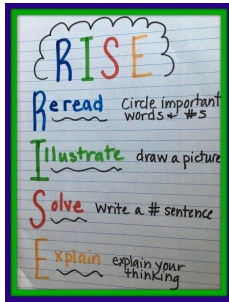 RISE
Reread Circle important
words & #s
Illustrate draw a picture
Solve write a # sentence
Explain explain your
thinking